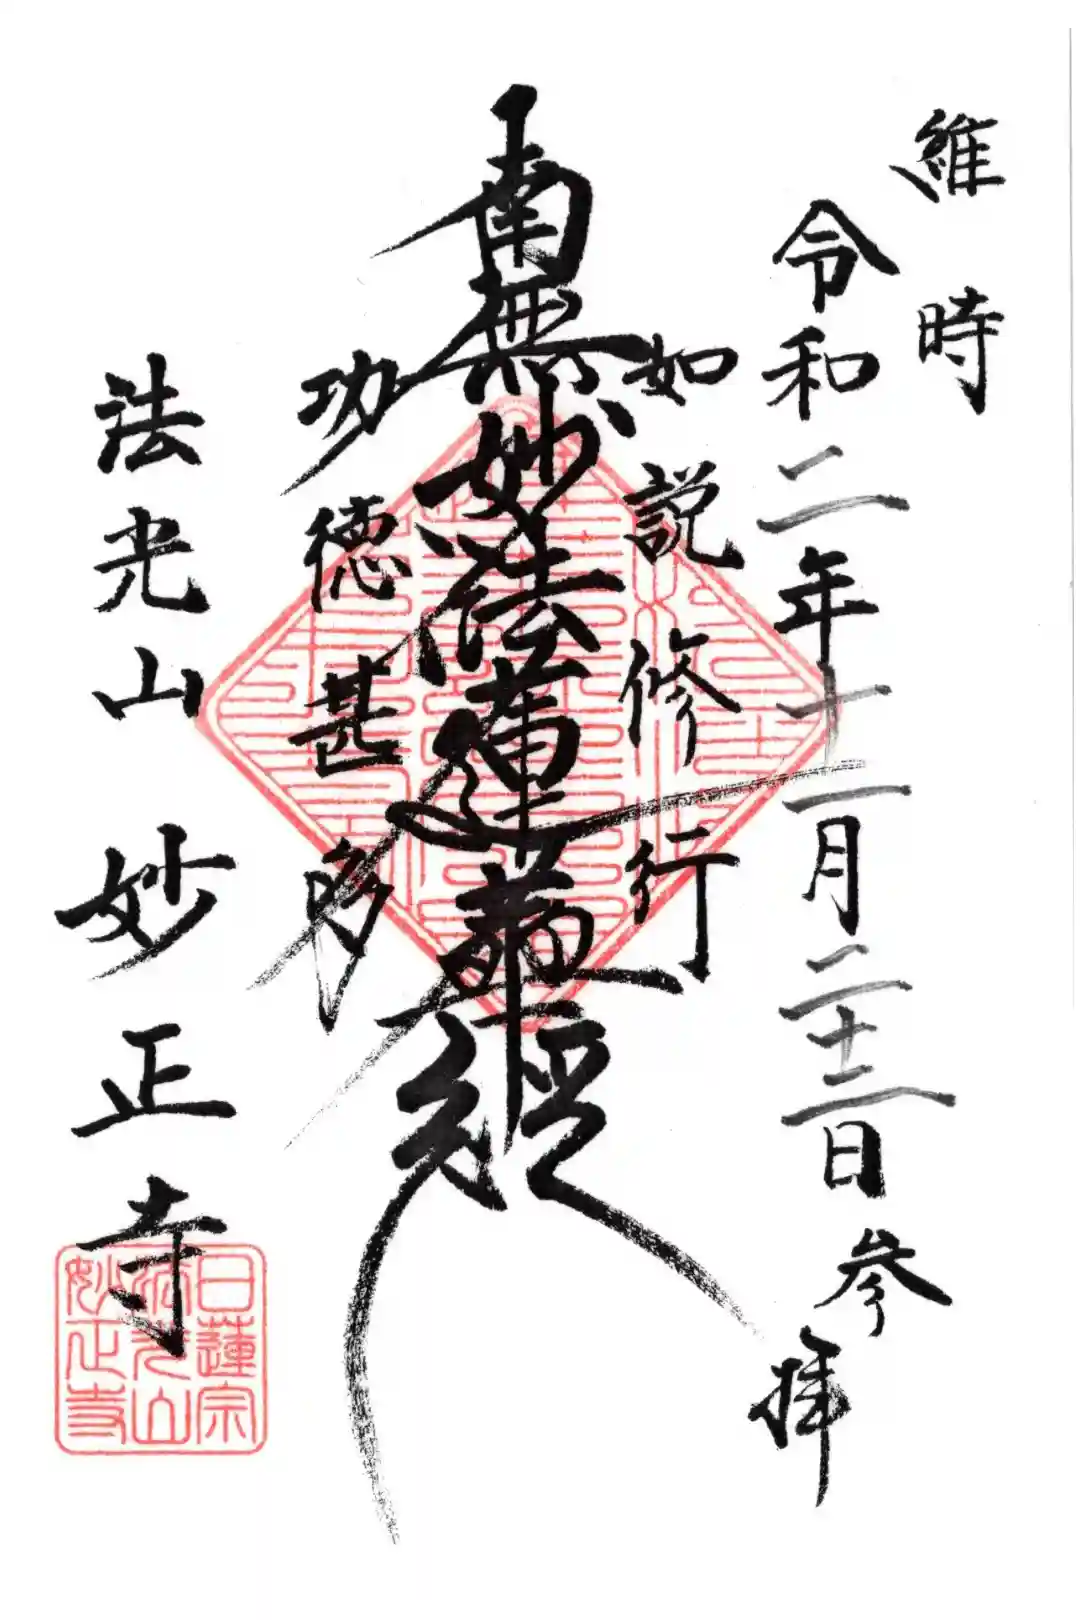 維時
令和二年十一月二十二日参拝
如説修行
南無妙法蓮華経
功徳甚多
法光山 妙正寺
日蓮宗
法光山
妙正寺